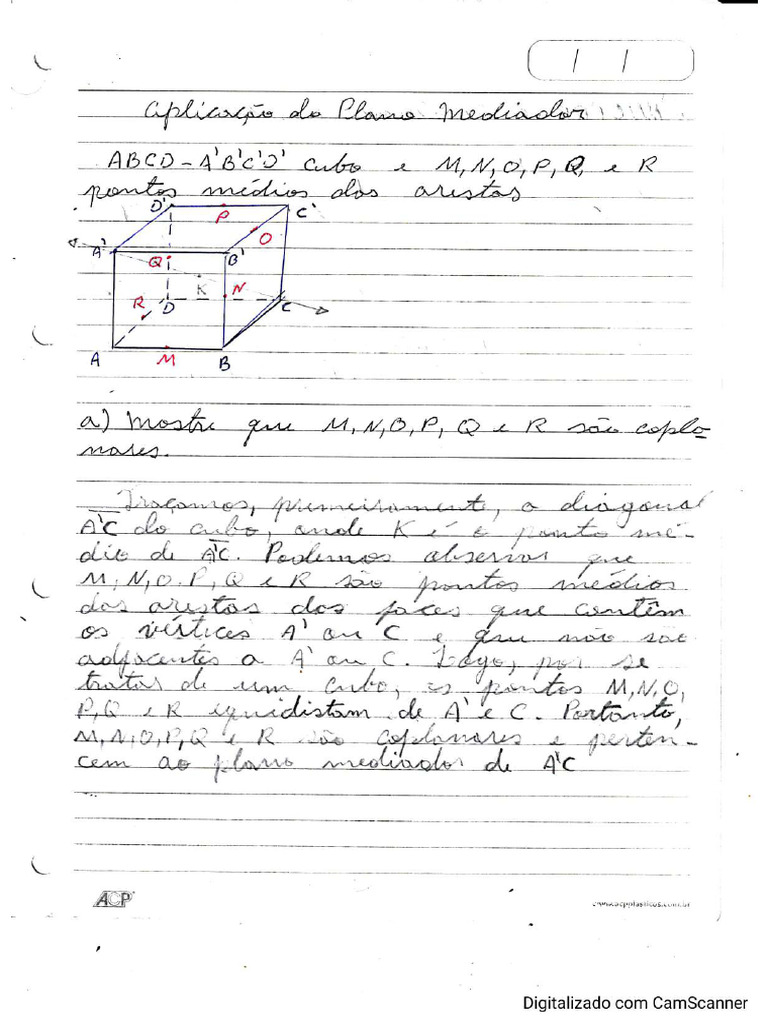 Aplicação do Plano Mediador
ABCD - A'B'C'D' cubo e M, N, O, P, Q, e R
pontos médios das arestas
D' P C'
O
A' Q B'
K N
R D C
A M B
a) Mostre que M, N, O, P, Q e R são copla-
nares.
Traçamos, primeiramente, a diagonal
A'C do cubo, onde K é o ponto mé-
dio de A'C. Podemos observar que
M, N, O, P, Q e R são pontos médios
das arestas das faces que contêm
os vértices A' ou C e que não são
adjacentes a A' ou C. Logo, por se
tratar de um cubo, os pontos M, N, O,
P, Q e R equidistam de A' e C. Portanto,
M, N, O, P, Q e R são coplanares e perten-
cem ao plano mediador de A'C
ACP
www.acpplasticos.com.br
Digitalizado com CamScanner